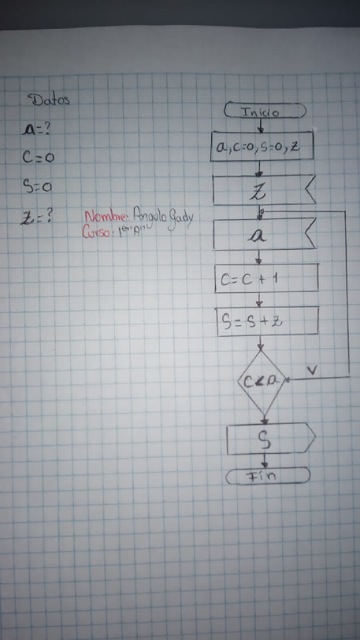 Datos
a=?
C=0
S=0
Z=?
Nombre: Angulo Gady
Curso: 1ero "A"
Inicio
a, c=0, s=0, z
Z
a
C= C + 1
S= S + Z
C<a
V
S
Fin